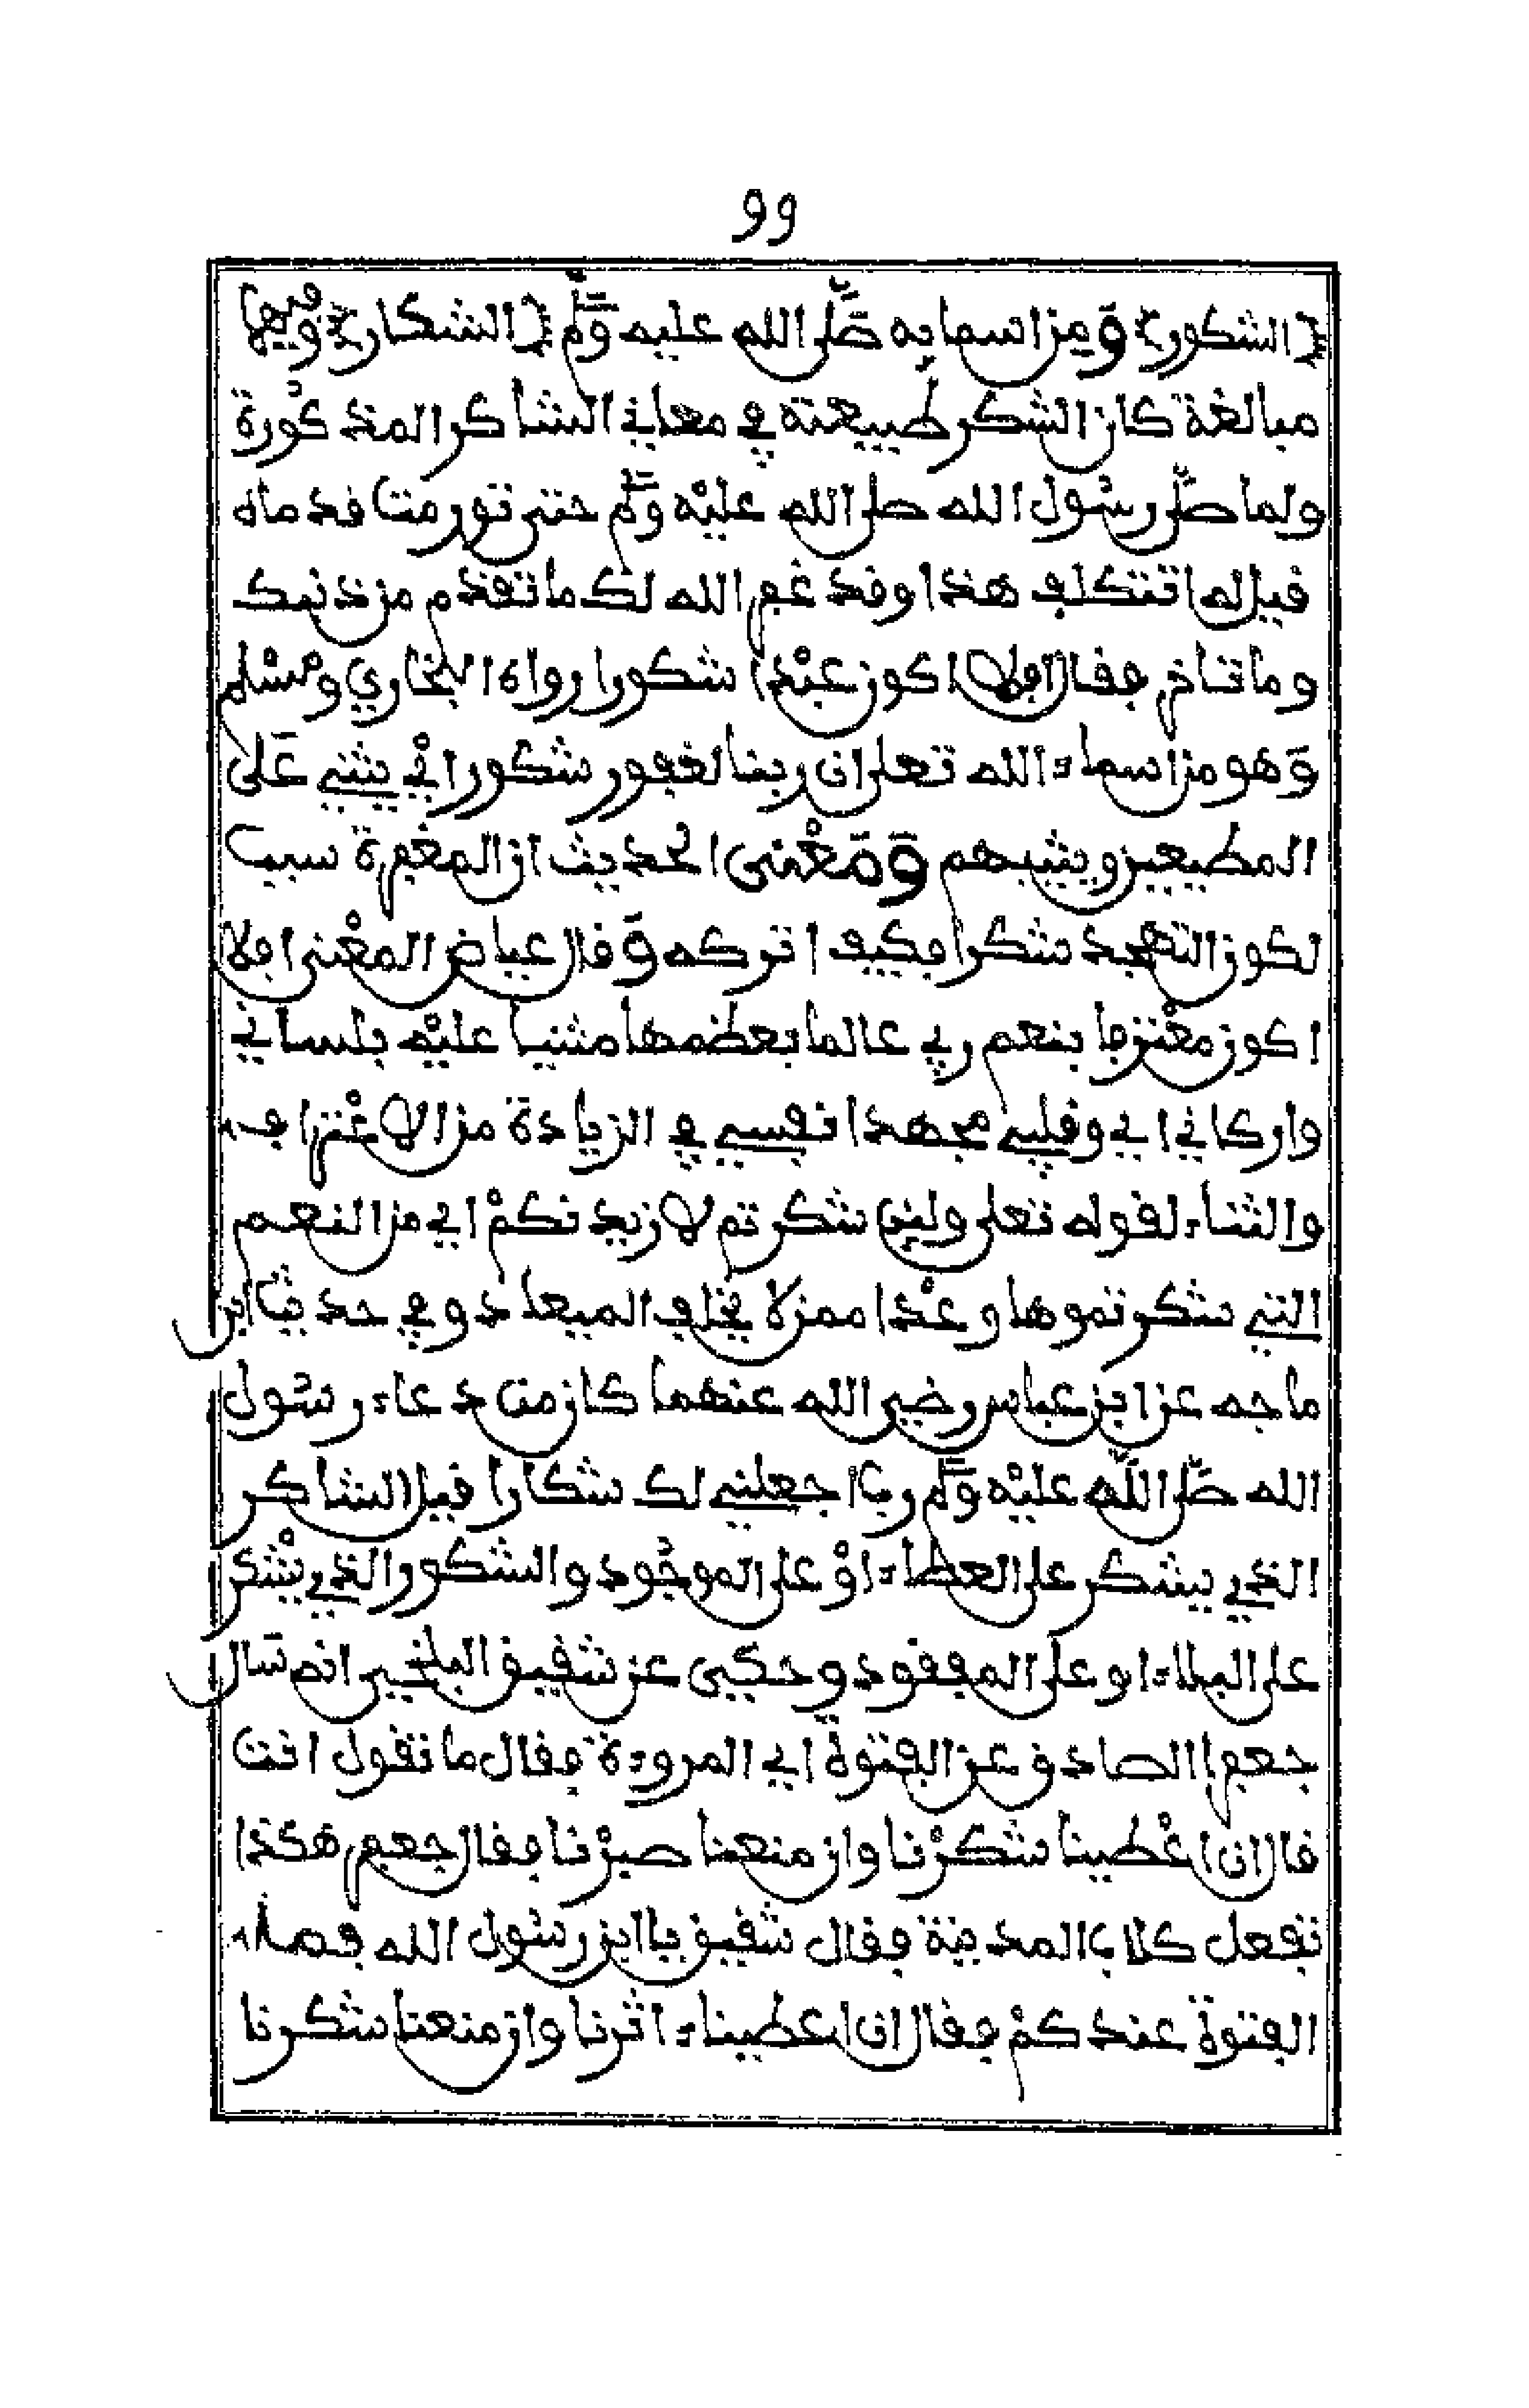 99
﴿الشكور﴾ ومن اسمايه صلى الله عليه وسلم ﴿الشكار﴾ وفيها
مبالغة كان الشكر طبيعته في معاني الشاكر المذكورة
ولما صلى رسول الله صلى الله عليه وسلم حتى تورمت قدماه
قيل له اتتكلف هذا وقد غفر الله لك ما تقدم من ذنبك
وما تأخر فقال افلا اكون عبدا شكورا رواه البخاري ومسلم
وهو من اسماء الله تعلى ان ربنا لغفور شكور اي يثني على
المطيعين ويثيبهم ومعنى الحديث ان المغفرة سبب
لكون التهجد شكرا فكيف اتركه وقال عياض المعنى افلا
اكون معترفا بنعم ربي عالما بعظمها مثنيا عليه بلساني
واركاني اي وقلبي مجهدا نفسي في الزيادة من الاعتراف
والثناء لقوله تعلى ولين شكرتم لازيدنكم اي من النعم
التي شكرتموها وعدا ممن لا يخلف الميعاد وفي حديث ابن
ماجه عن ابن عباس رضي الله عنهما كان من دعاء رسول
الله صلى الله عليه وسلم رب اجعلني لك شكارا قيل الشاكر
الذي يشكر على العطاء او على الموجود والشكور الذي يشكر
على البلاء او على المفقود وحكي عن شقيق البلخي انه سال
جعفرا الصادق عن الفتوة اي المروءة فقال ما تقول انت
قال ان اعطينا شكرنا وان منعنا صبرنا فقال جعفر هكذا
تفعل كلاب المدينة فقال شقيق يا ابن رسول الله فما
الفتوة عندكم فقال ان اعطينا ءاثرنا وان منعنا شكرنا